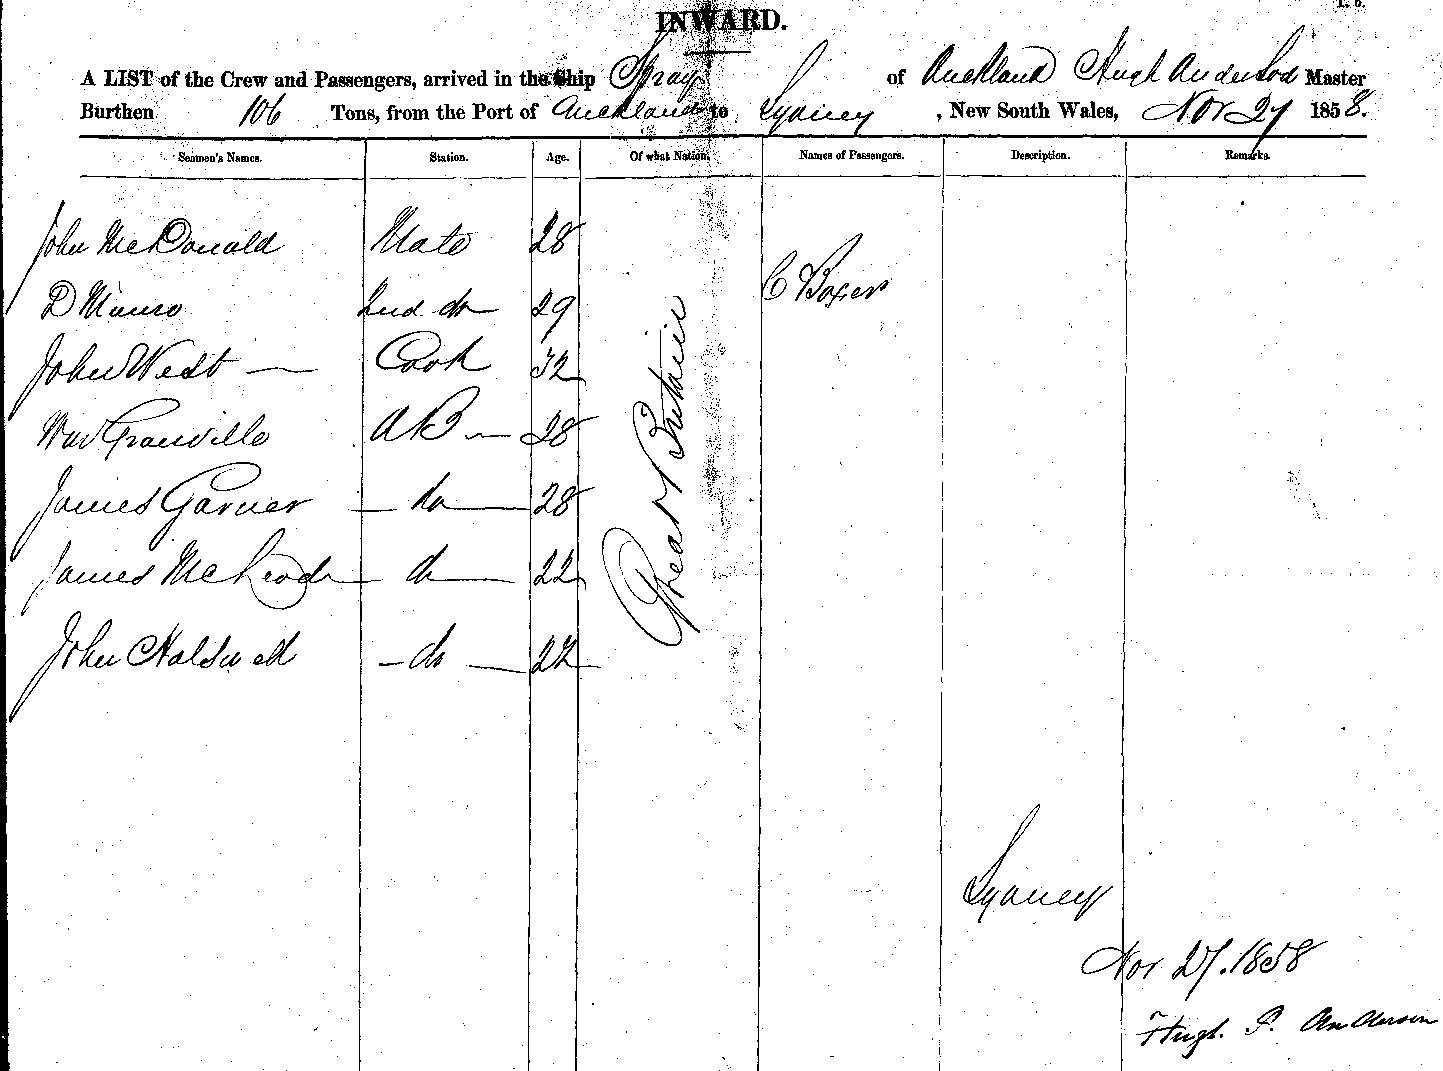 INWARD.
A LIST of the Crew and Passengers, arrived in the Ship Spray of Auckland Hugh Anderson Master
Burthen 106 Tons, from the Port of Auckland to Sydney, New South Wales, Nov 27 1858.
Seamen's Names. Station. Age. Of what Nation. Names of Passengers. Description. Remarks.
John McDonald Mate 28
C Boxer
D Munro 2nd do 29
John West Cook 32
Wm Granville AB 28
James Garner do 28
James McLeod do 22
John do 22
Great Britain
Sydney
Nov 27. 1858
Hugh. P. Anderson